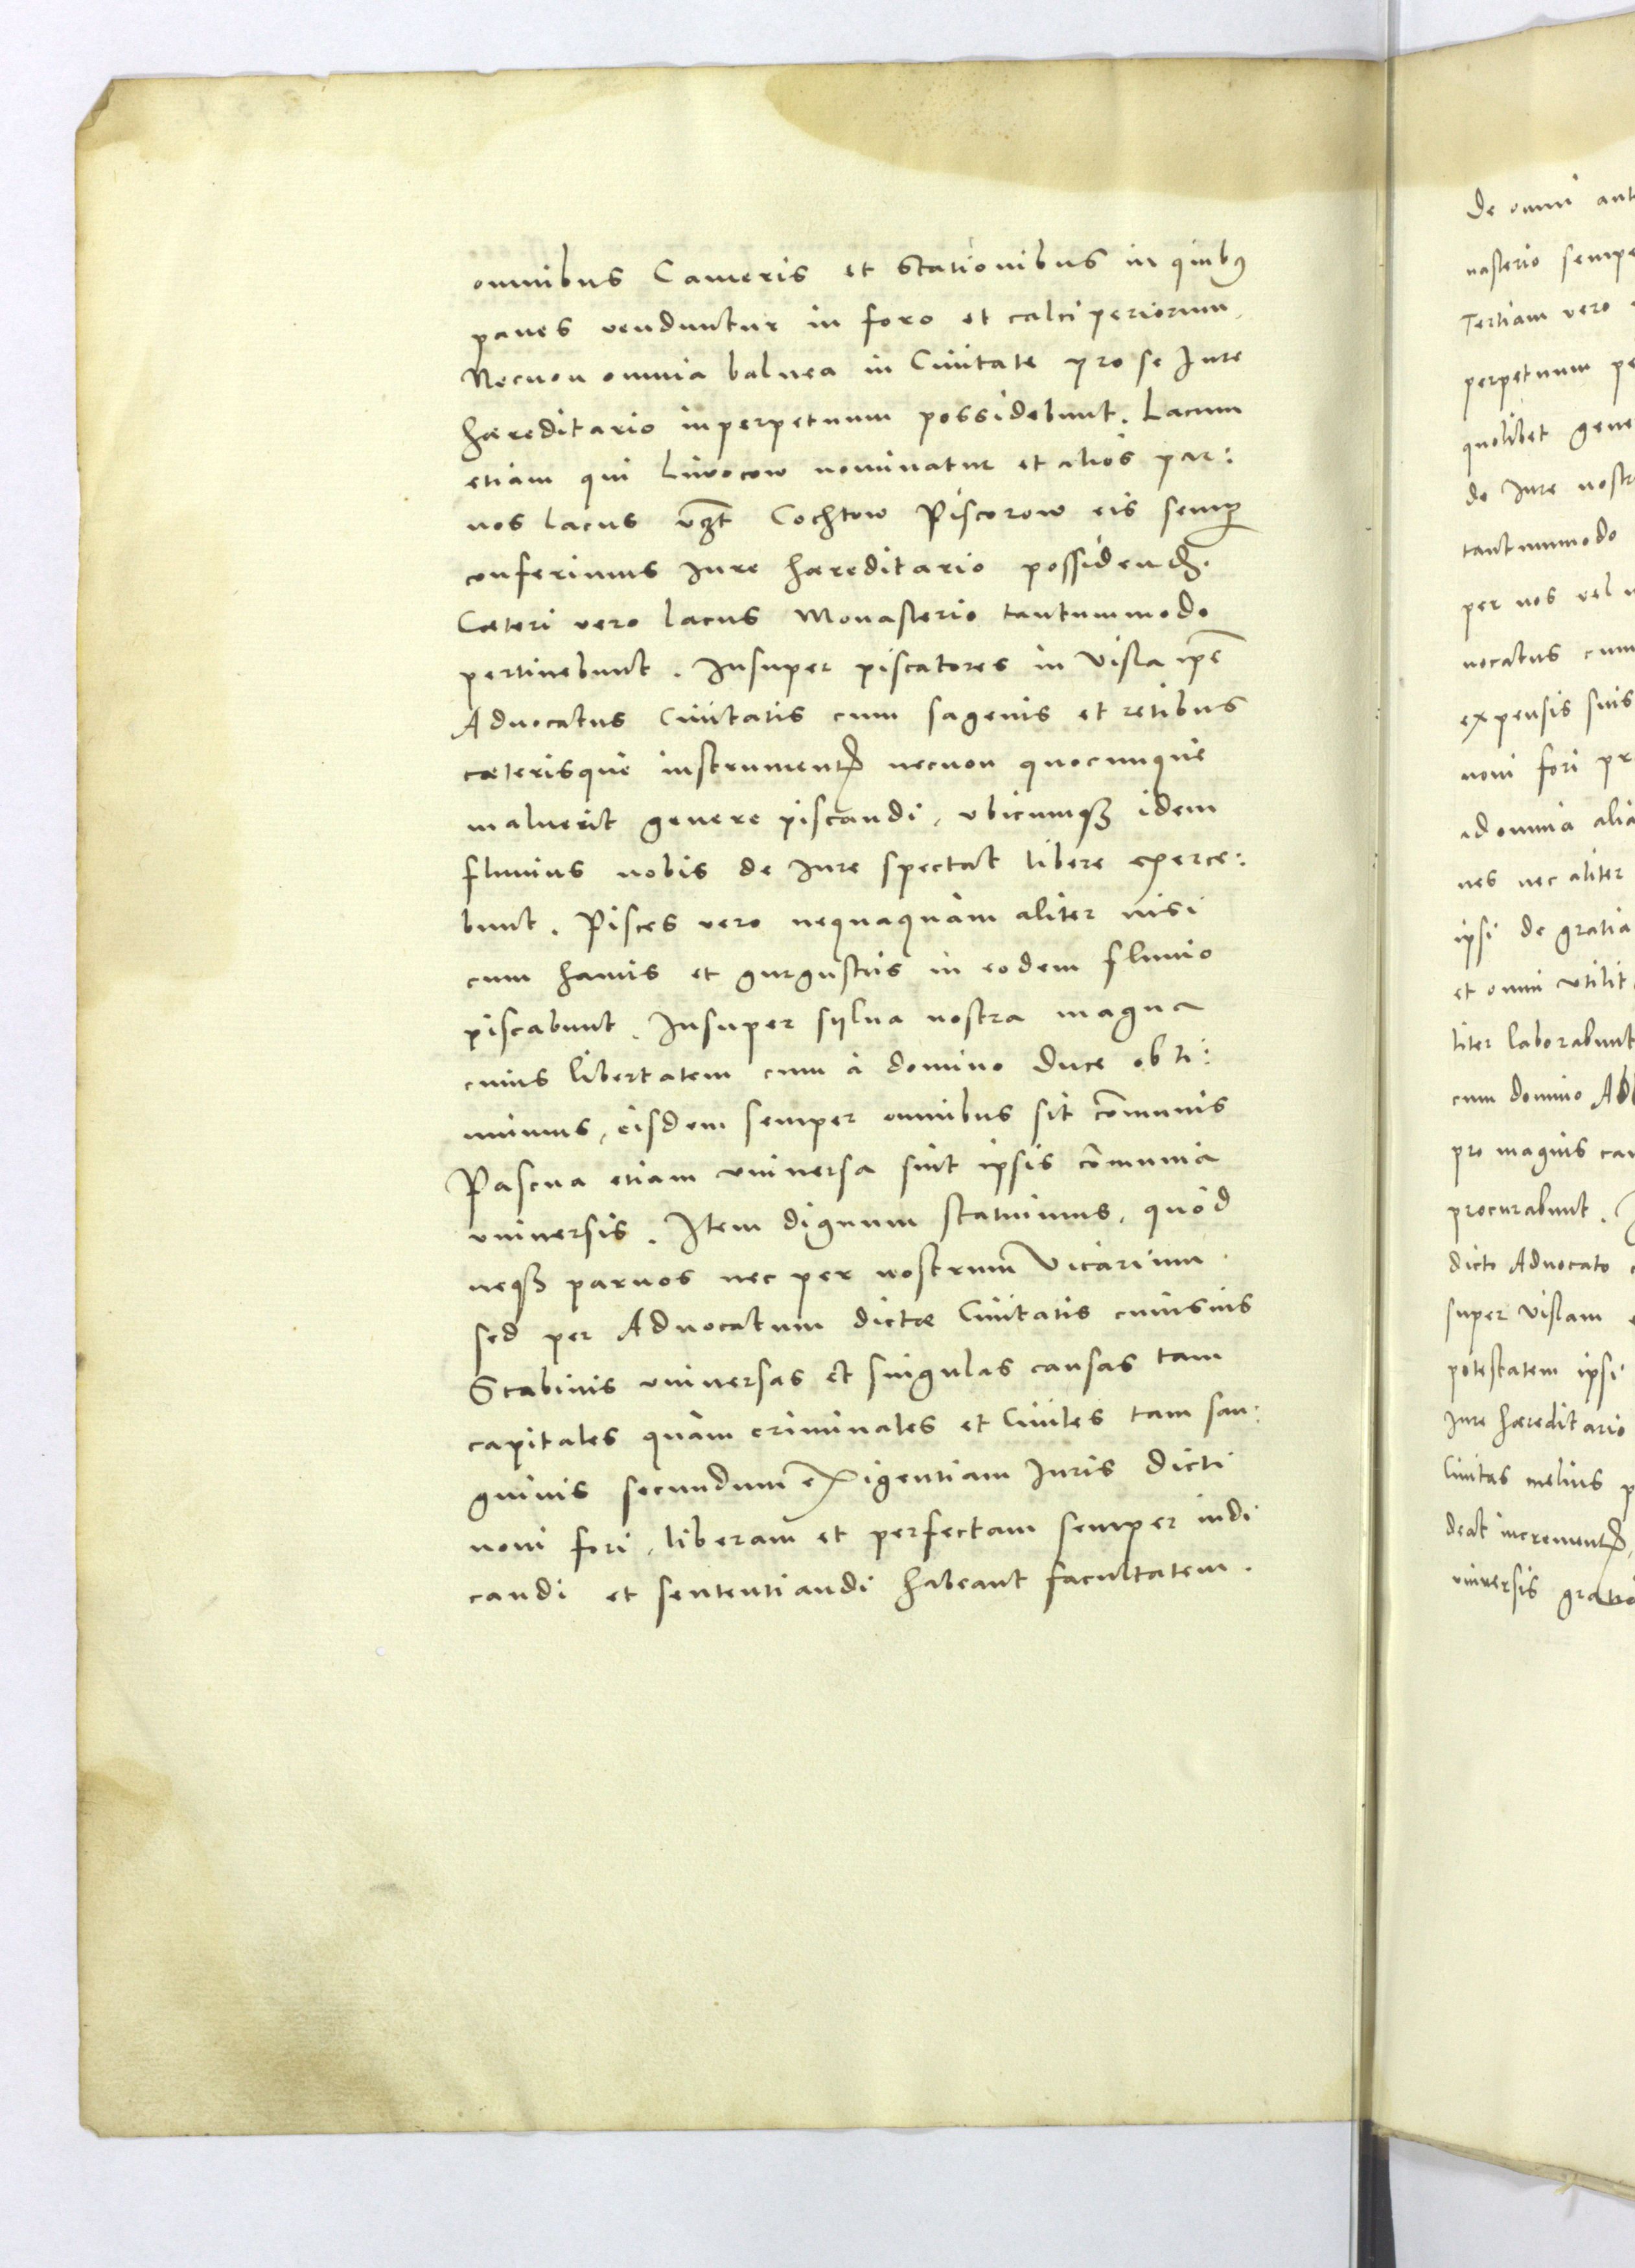 omnibus Cameris et stationibus in quibꝯ
panes venduntur in foro et calciperiorum,
Necnon omnia balnea in Ciuitate pro se Iure
hæreditario inperpetuum possidebunt. Lacum
etiam qui Liwocow nominatur et alios par:
uos lacus vꝫt Cochtow Piscorow eis semꝑ
conferimus Iure hæreditario possidend.
Cæteri vero lacus Monasterio tantummodo
pertinebunt. Insuper piscatores in Visla ip̄e
Aduocatus Ciuitatis cum sagenis et retibus
cæterisque instrumentꝭ necnon quocunque
maluerit genere piscandi, vbicumqꝫ idem
fluuius nobis de Iure spectat libere exerce:
bunt. Pisces vero nequaquam aliter nisi
cum hamis et gurgustiis in eodem fluuio
piscabunt. Insuper sylua nostra magna
cuius libertatem cum à domino Duce obti:
nuimus, eisdem semper omnibus sit cōmunis
Pascua etiam vniuersa sint ipsis cōmunia
vniuersis. Item dignum statuimus, quòd
neqꝫ paruos nec per nostrum Vicarium.
sed per Aduocatum dictæ Ciuitatis cuiusuis
Scabinis vniuersas et singulas causas tam
capitales quàm criminales et Ciuiles tam san:
guinis secundum exigentiam Iuris dicti
noui fori, liberam et perfectam semper iudi
candi et sententiandi habeant facultatem.
de omni
nasterio
Tertiam vero
perpetuum
quolibet
de Iure
tantummodo
per nos vel
uocatus cum
expensis suis
noui fori
ad omnia
nes nec aliter
ipsi de gratia
et omni
liter laborabunt
cum domino
pro magnis
procurabunt.
dicto Aduocato
super Vislam
potestatem ipsi
Iure hæreditario
Ciuitas melius
deat incrementꝭ,
vniuersis